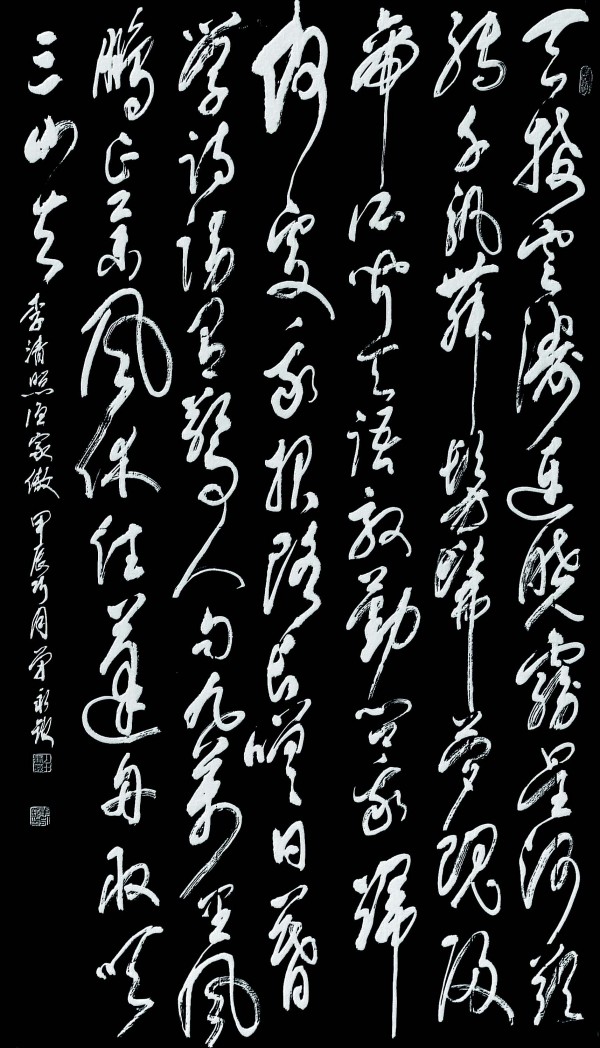 天接雲濤連曉霧星河欲
轉千帆舞髣髴夢魂歸
帝所聞天語殷勤問我歸
何處我報路長嗟日暮
學詩謾有驚人句九萬里風
鵬正舉風休住蓬舟取吹
三山去 李清照漁家傲 甲辰巧月